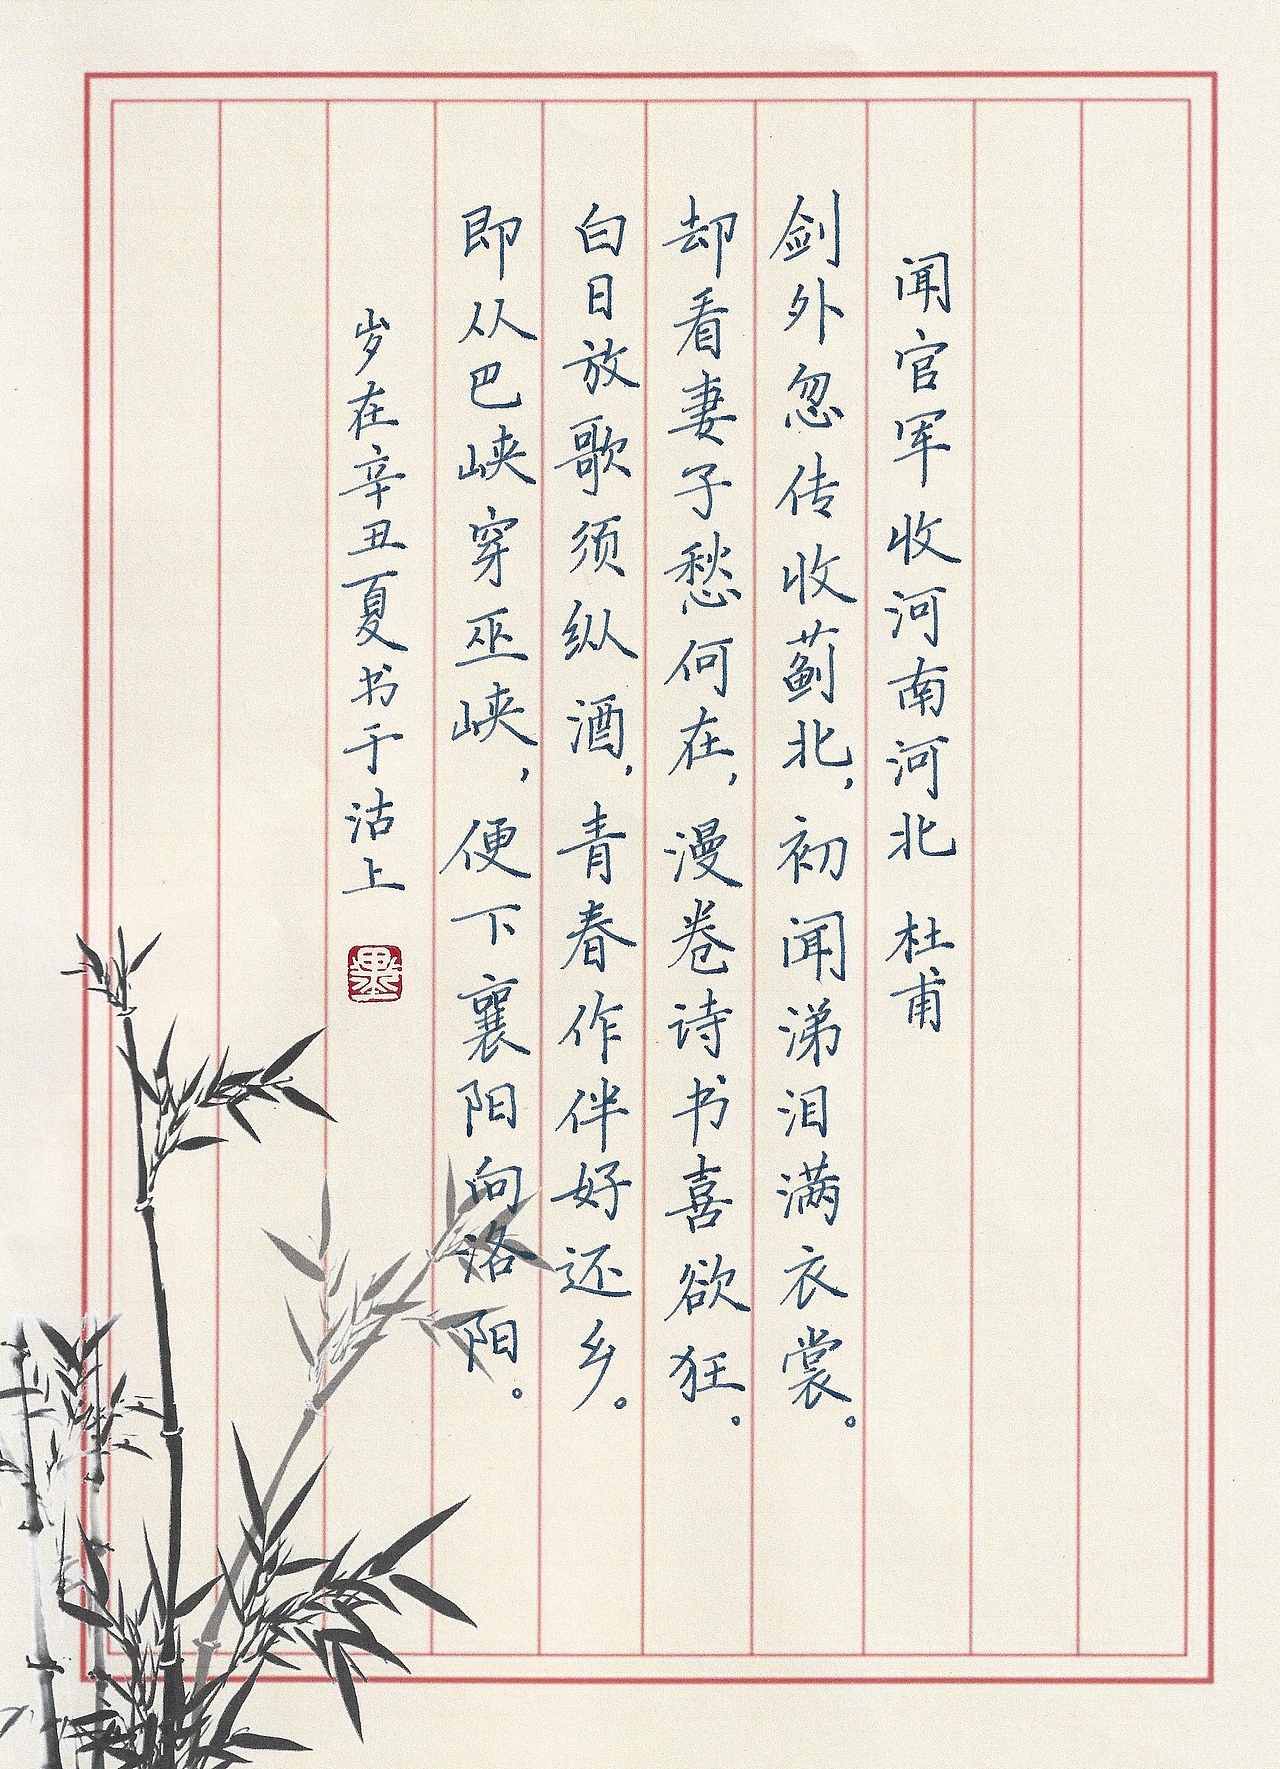 闻官军收河南河北 杜甫
剑外忽传收蓟北，初闻涕泪满衣裳。
却看妻子愁何在，漫卷诗书喜欲狂。
白日放歌须纵酒，青春作伴好还乡。
即从巴峡穿巫峡，便下襄阳向洛阳。
岁在辛丑夏书于沽上